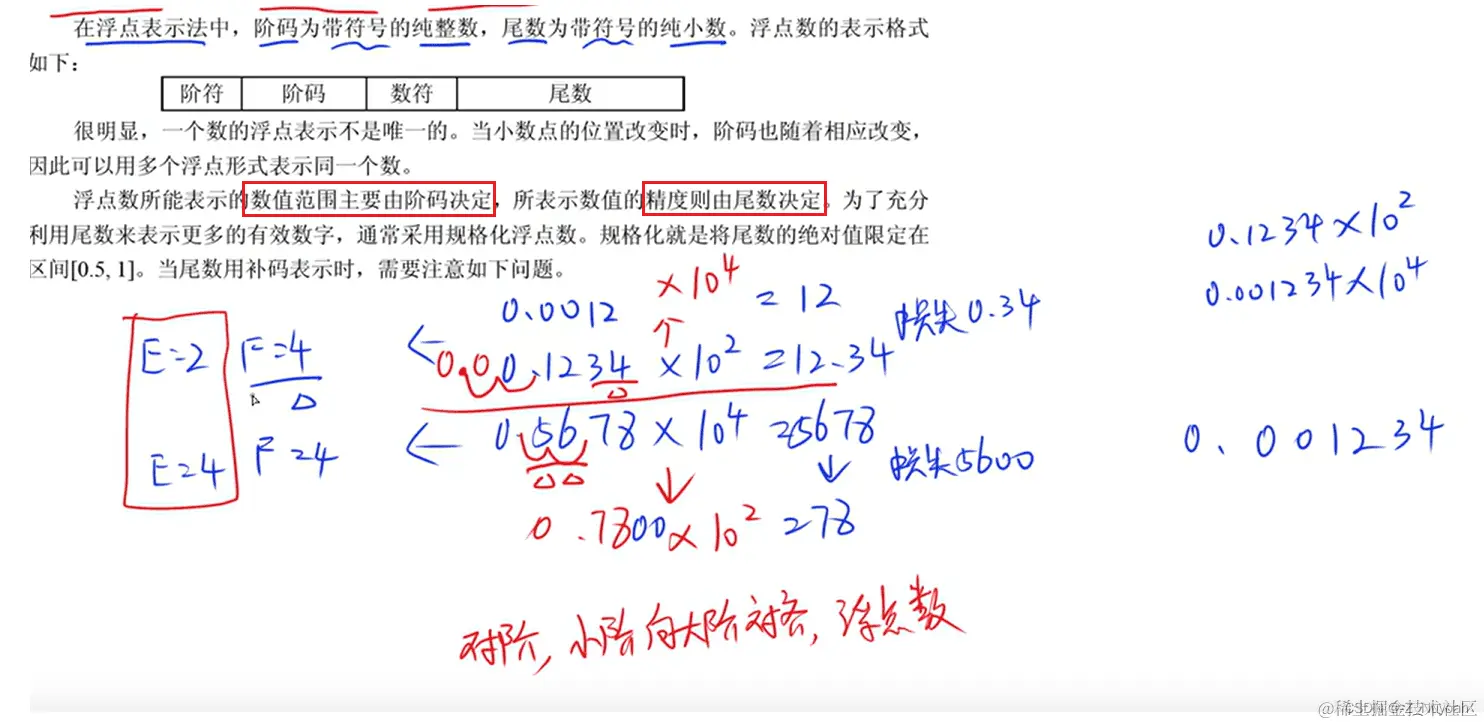 在浮点表示法中，阶码为带符号的纯整数，尾数为带符号的纯小数。浮点数的表示格式
如下：
阶符 阶码 数符 尾数
很明显，一个数的浮点表示不是唯一的。当小数点的位置改变时，阶码也随着相应改变，
因此可以用多个浮点形式表示同一个数。
浮点数所能表示的数值范围主要由阶码决定，所表示数值的精度则由尾数决定。为了充分
利用尾数来表示更多的有效数字，通常采用规格化浮点数。规格化就是将尾数的绝对值限定在
区间[0.5, 1]。当尾数用补码表示时，需要注意如下问题。
0.1234×10²
0.001234×10⁴
0.0012 ×10⁴ = 12
损失0.34
E=2 F=4
← 0.0 0.1234 ×10² =12.34
↑
← 0.5678 × 10⁴ =5678
E=4 F=4
损失5600
0.001234
↓ ↓
0.7800×10² =78
对阶，小阶向大阶对齐，浮点数